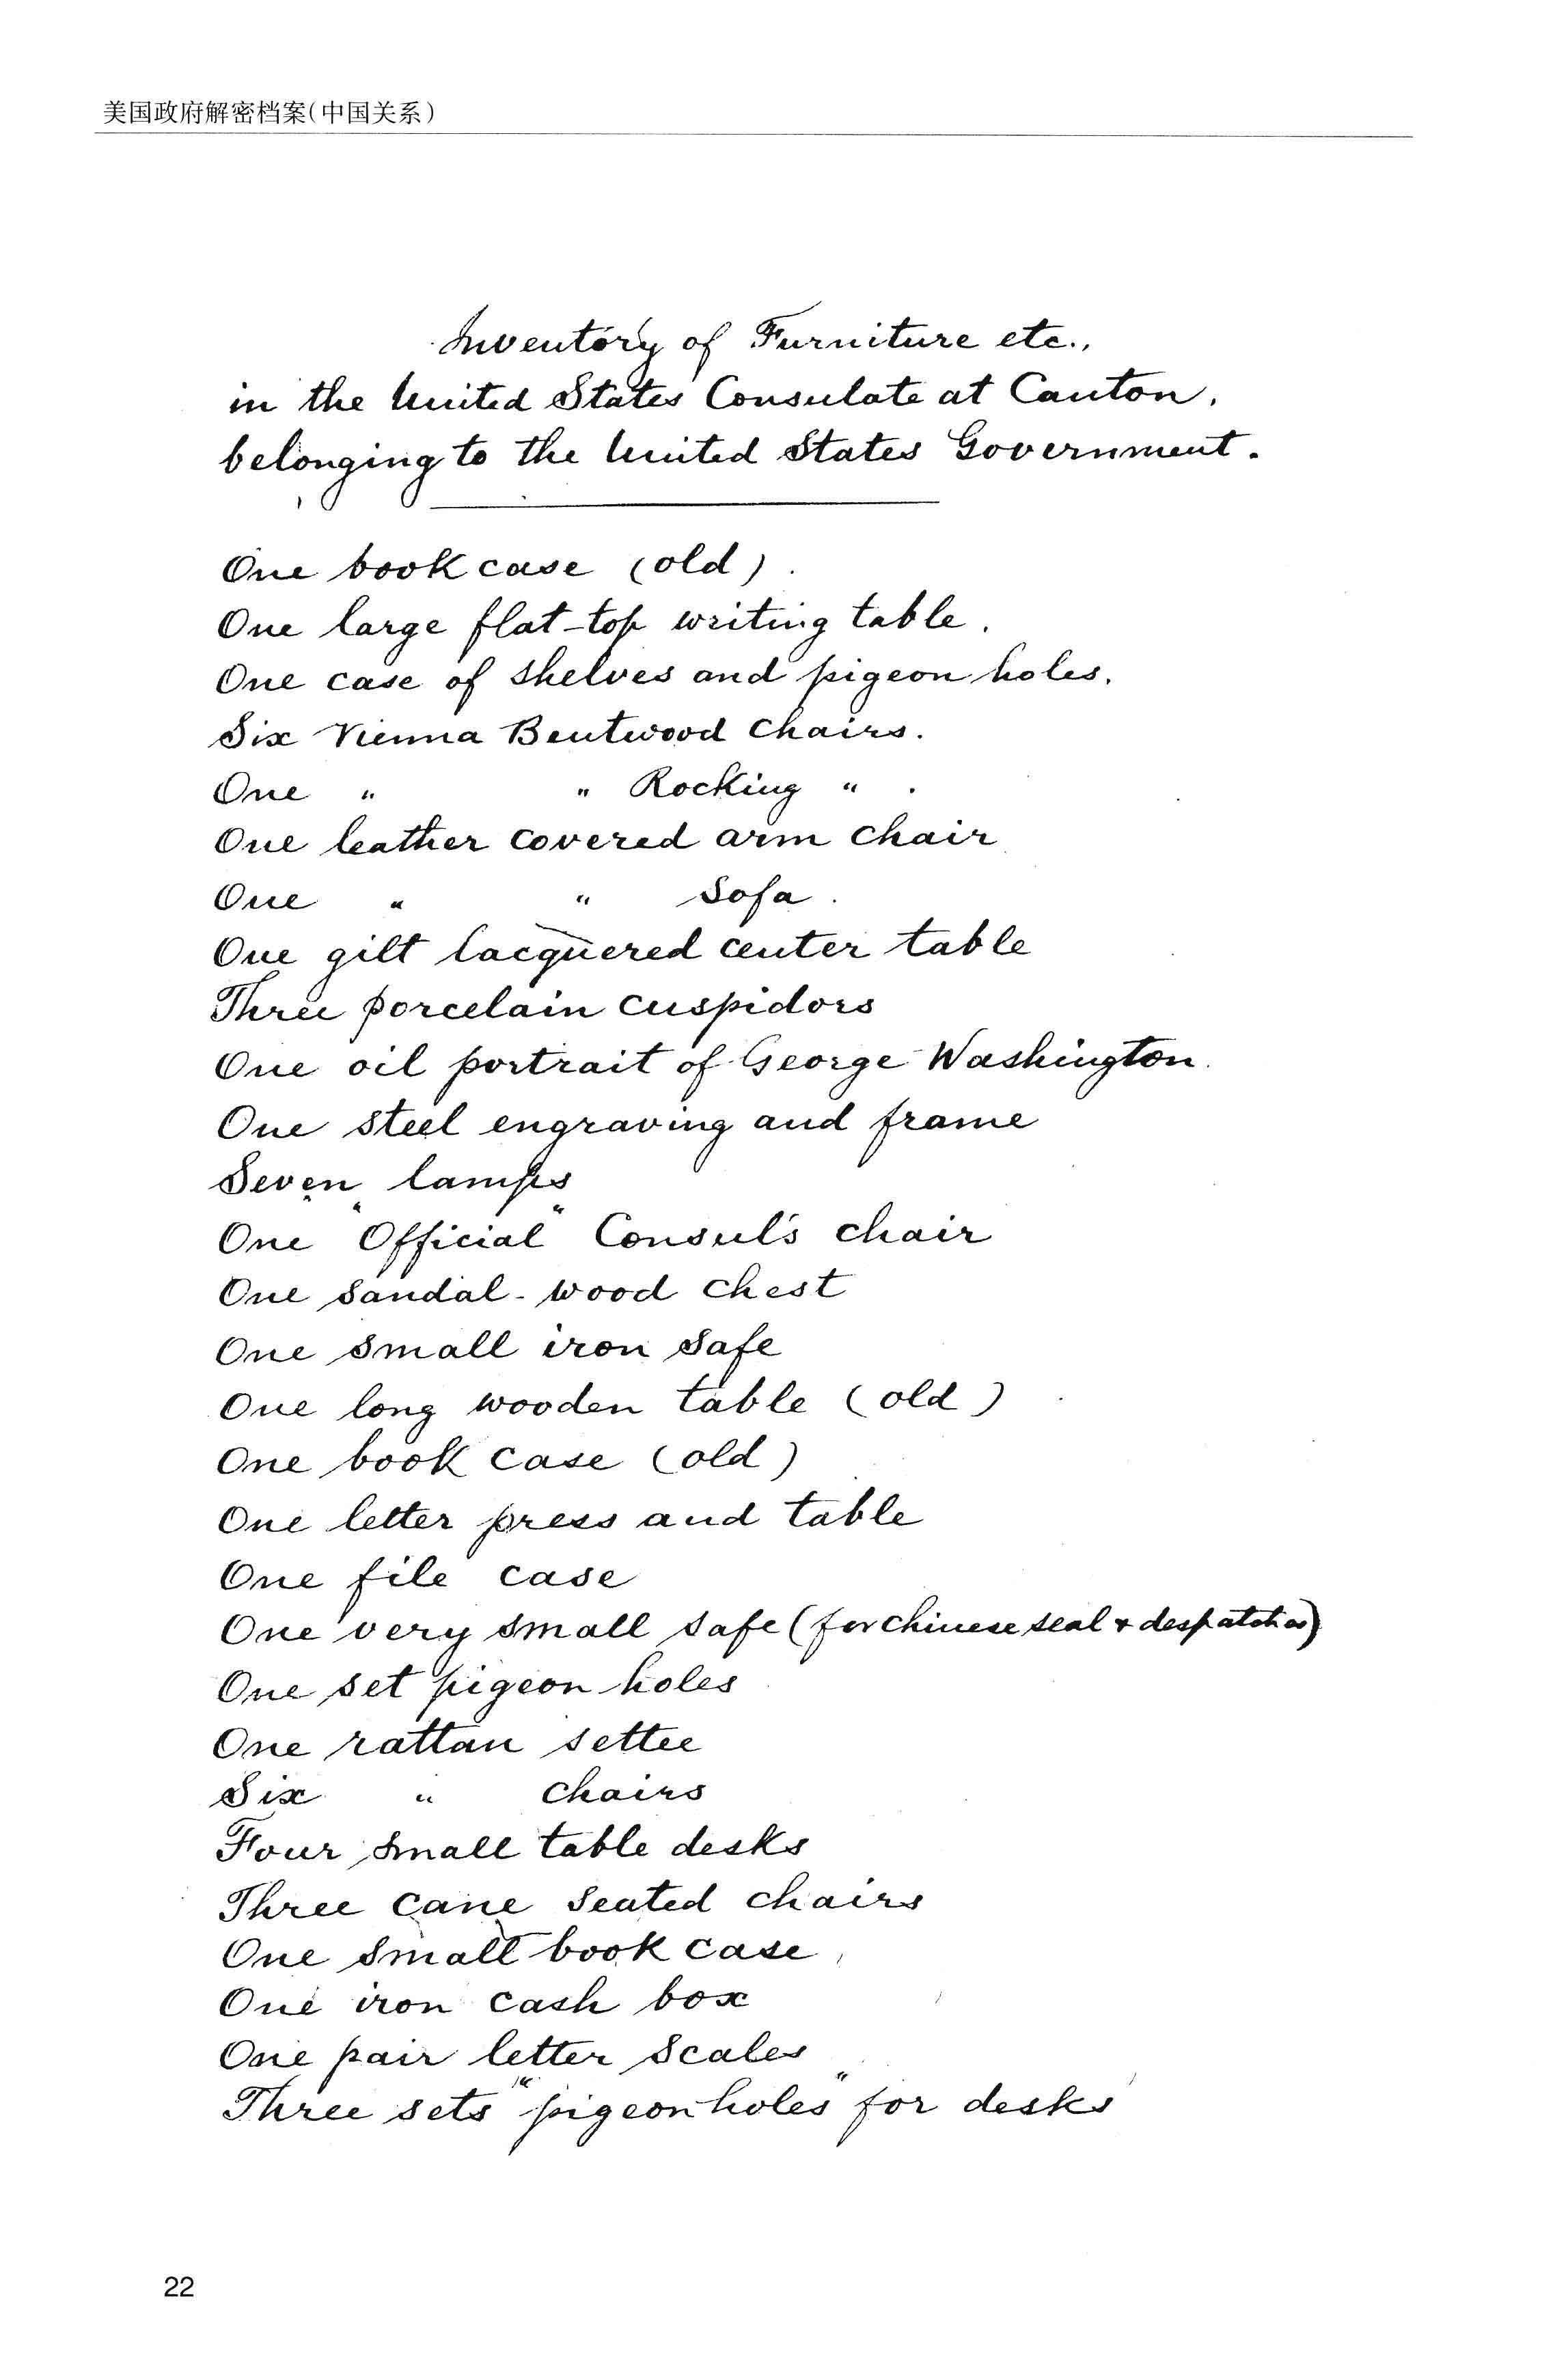 美国政府解密档案(中国关系)
Inventory of Furniture etc.,
in the United States Consulate at Canton,
belonging to the United States Government.
One book case (old).
One large flat-top writing table.
One case of shelves and pigeon holes.
Six Vienna Bentwood Chairs.
One " " Rocking " .
One leather covered arm chair
One " " Sofa.
One gilt lacquered center table
Three porcelain cuspidors
One oil portrait of George Washington.
One steel engraving and frame
Seven lamps
One "Official" Consul's chair
One sandal-wood chest
One small iron safe
One long wooden table (old)
One book case (old)
One letter press and table
One file case
One very small safe (for Chinese seal & despatches)
One set pigeon holes
One rattan settee
Six " chairs
Four small table desks
Three cane seated chairs
One small book case
One iron cash box
One pair letter scales
Three sets "pigeon holes" for desks
22